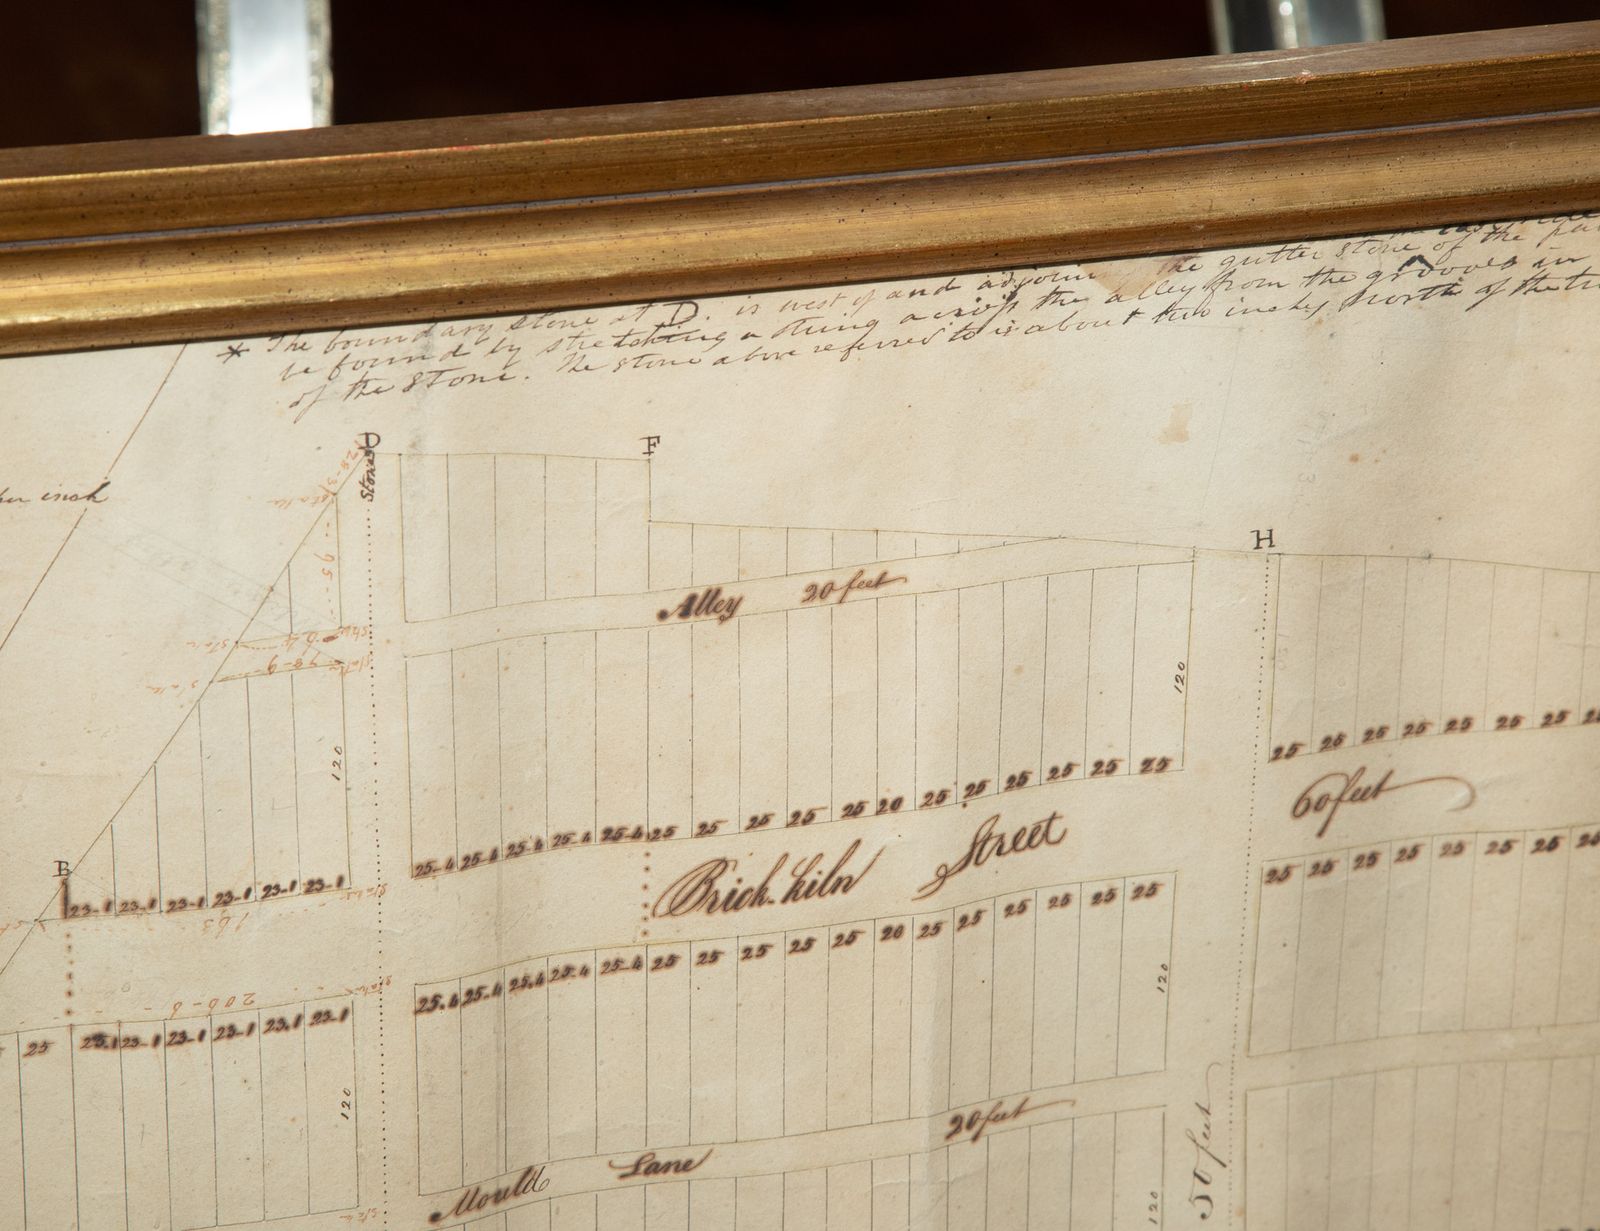 * The boundary stone at D. is west of and adjoining the gutter stone of the
be found by stretching a string across the alley from the grooves in
of the stone. The stone above referred to is about two inches north of the
inch
D
F
Stone
stake
95
H
Alley 20 feet
stake
64
stake
78-9
120
120
25 25 25 25 25 25 25
25-4 25-4 25-4 25-4 25-4 25 25 25 25 25 20 25 25 25 25 25 25
60 feet
B
Brick-kiln Street
23-1 23-1 23-1 23-1 23-1 23-1
163
25 25 25 25 25 25 25
25.4 25.4 25.4 25.4 25-4 25 25 25 25 25 20 25 25 25 25 25 25
206-6
25 23.1 23-1 23-1 23-1 23.1 23-1
120
120
20 feet
50 feet
Mould Lane
120